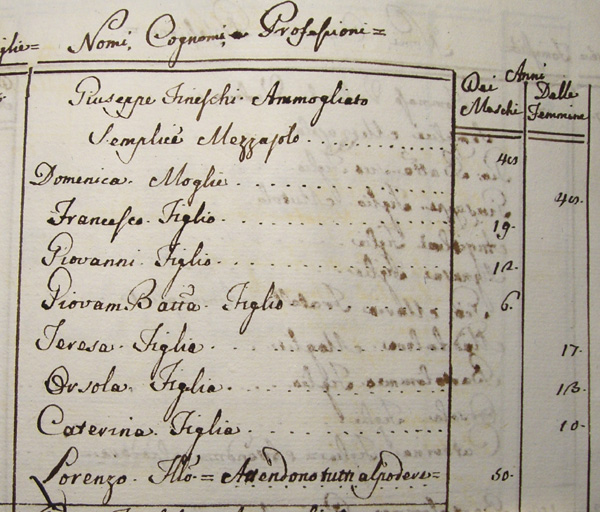 glie=
Nomi, Cognomi, e Professioni=
Anni
Dei Maschi
Dalle Femmine
Giuseppe Fineschi Ammogliato
Semplice Mezzajolo
40
Domenica. Moglie
40.
Francesco. Figlio
19.
Giovanni. Figlio
12.
Giovam Batta. Figlio
6.
Teresa. Figlia
17.
Orsola. Figlia
13.
Caterina. Figlia
10.
Lorenzo. = Attendono tutti al podere=
50.